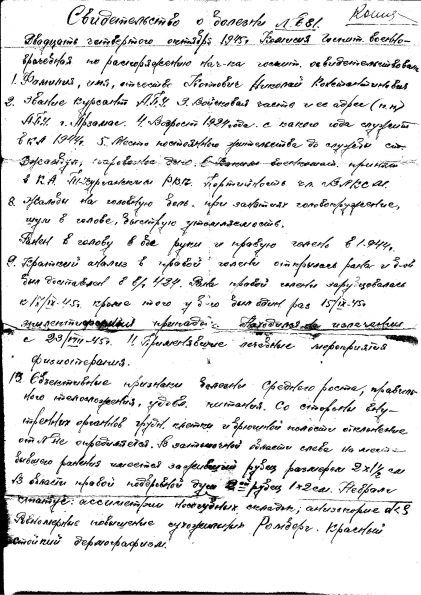 Копия
Свидетельство о болезни № 681.
Двадцать четвертого октября 1945г. Комиссия госпит. военно-
врачебная по распоряжению нач-ка госпит. освидетельствовала
1. Фамилия, имя, отчество Костович Николай Константинович
2. Звание курсант А.П.У. 3. Войсковая часть и ее адрес (п.п)
А.П.У. г. Арзамас. 4. Возраст 1924 года. с какого года служит
в К.А 1944г. 5. Место постоянного жительства до службы ст.
6. Каким военкомат. принят
в К.А. РВК. Партийность чл. ВЛКСМ.
8. Жалобы на головную боль. при занятиях головокружение,
шум в голове, быструю утомляемость.
Ранен в голову в обе руки и правую голень в 1944г.
9. Краткий анализ в правой голени открылась рана и б-ой
был доставлен в в/г 424. Рана правой голени зарубцевалась
к 15/IX-45г. кроме того у б-го был один раз 15/IX-45г.
припадок. Находился на излечении
с 23/VIII-45г. 11. Применявшие лечебные мероприятия
Физиотерапия.
13. Объективные признаки болезни Среднего роста, правиль-
ного телосложения, удовл. питания. Со стороны внут-
тренних органов грудн. клетки и брюшной полости отклонение
от № не определяется. В затылочной области слева на месте
бывшего ранения имеется заживший рубец размером 2х1½ см
В области правой надбровной дуги рубец 1х2см. Невралг.
статус: ассиметрия носогубных складок, анизокория d<S
Равномерное повышение сухожильных Ромберг. Красный
стойкий дермографизм.